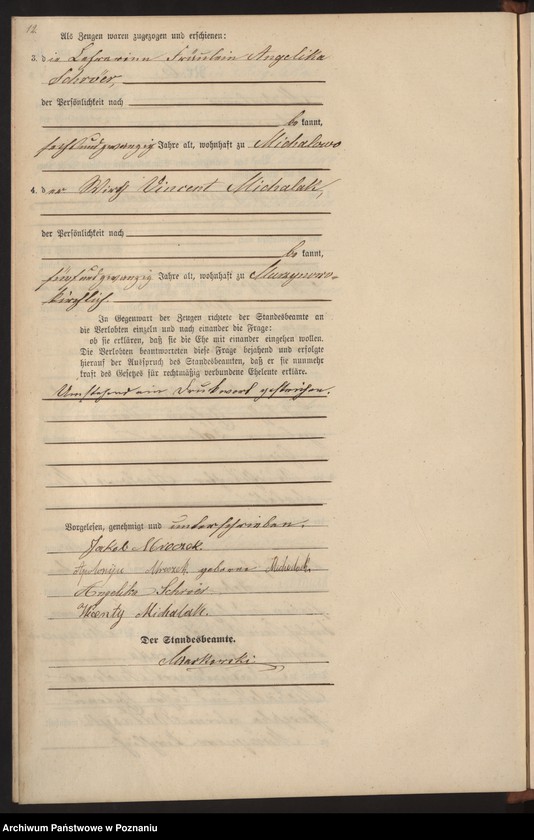 12
Als Zeugen waren zugezogen und erschienen:
3. die Lehrerinn Fräulein Angelika
Schröer,
der Persönlichkeit nach
be kannt,
sechsundzwanzig Jahre alt, wohnhaft zu Michalowo
4. der Wirth Vincent Michalak,
der Persönlichkeit nach
be kannt,
fünfundzwanzig Jahre alt, wohnhaft zu Murzynowo-
kirchlich.
In Gegenwart der Zeugen richtete der Standesbeamte an
die Verlobten einzeln und nach einander die Frage:
ob sie erklären, daß sie die Ehe mit einander eingehen wollen.
Die Verlobten beantworteten diese Frage bejahend und erfolgte
hierauf der Ausspruch des Standesbeamten, daß er sie nunmehr
kraft des Gesetzes für rechtmäßig verbundene Eheleute erkläre.
Umstehend ein Druckword gestrichen.
Vorgelesen, genehmigt und unterschrieben.
Jakob Mroczek.
Apolonija Mroczek geborene
Angelika Schröer
Wicenty Michalak.
Der Standesbeamte.
Archiwum Państwowe w Poznaniu